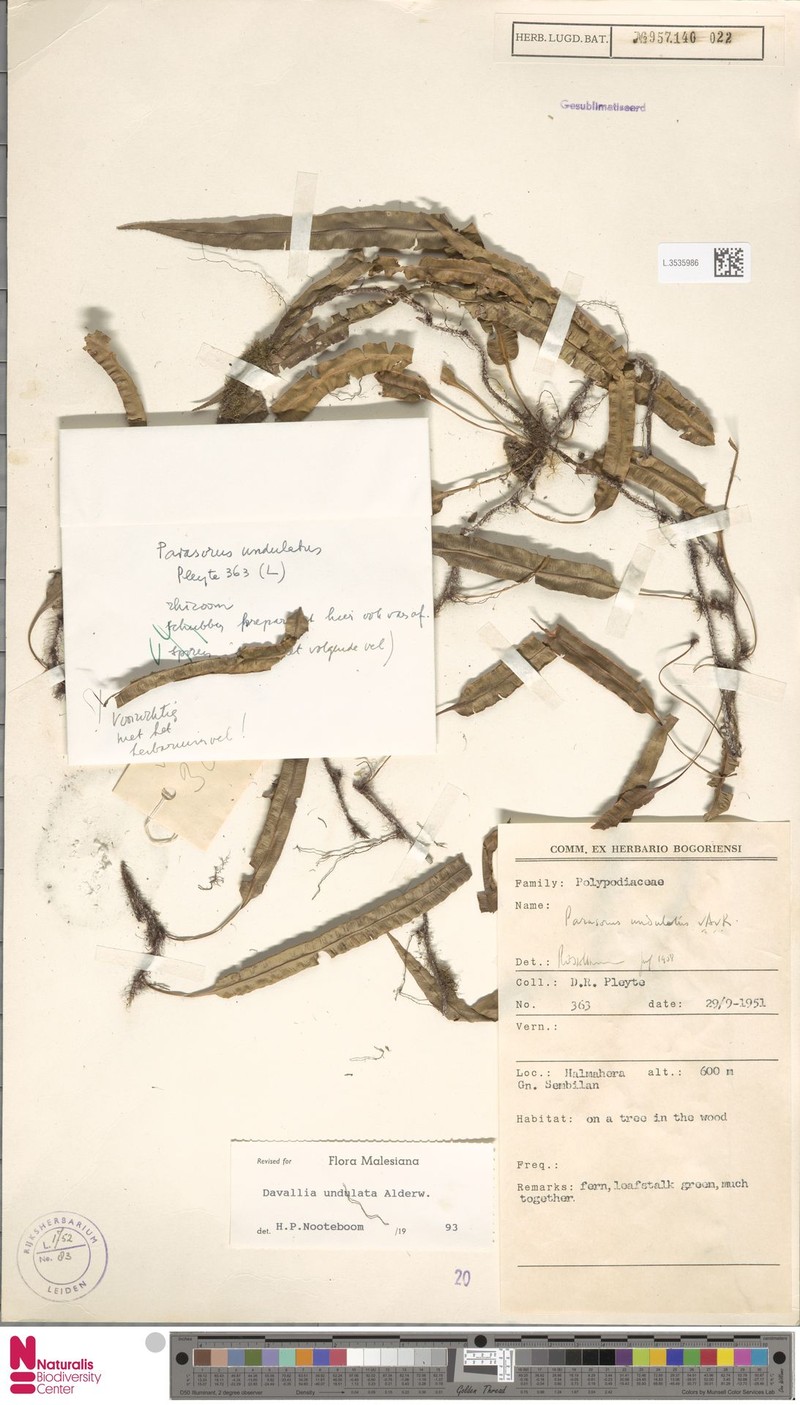 HERB. LUGD. BAT. № 957.146 022
Gesublimateerd
L.3535986
Parasorus undulatus
Pleyte 363 (L)
rhizoom
schubben
volgende vel)
Voorzichtig
met het
herbariumvel!
COMM. EX HERBARIO BOGORIENSI
Family: Polypodiaceae
Name:
Parasorus undulatus vAvR.
Det.:
Coll.: D.R. Pleyte
No. 363 date: 29/9-1951
Vern.:
Loc.: Halmahera alt.: 600 m
Gn. Sembilan
Habitat: on a tree in the wood
Freq.:
Remarks: fern, leafstalk green, much
together.
Revised for Flora Malesiana
Davallia undulata Alderw.
det. H.P. Nooteboom /19 93
20
RIJKSHERBARIUM
L. 1/52
No. 83
LEIDEN
Naturalis
Biodiversity
Center
D50 Illuminant, 2 degree observer
Density
Golden Thread
Colors by Munsell Color Services Lab